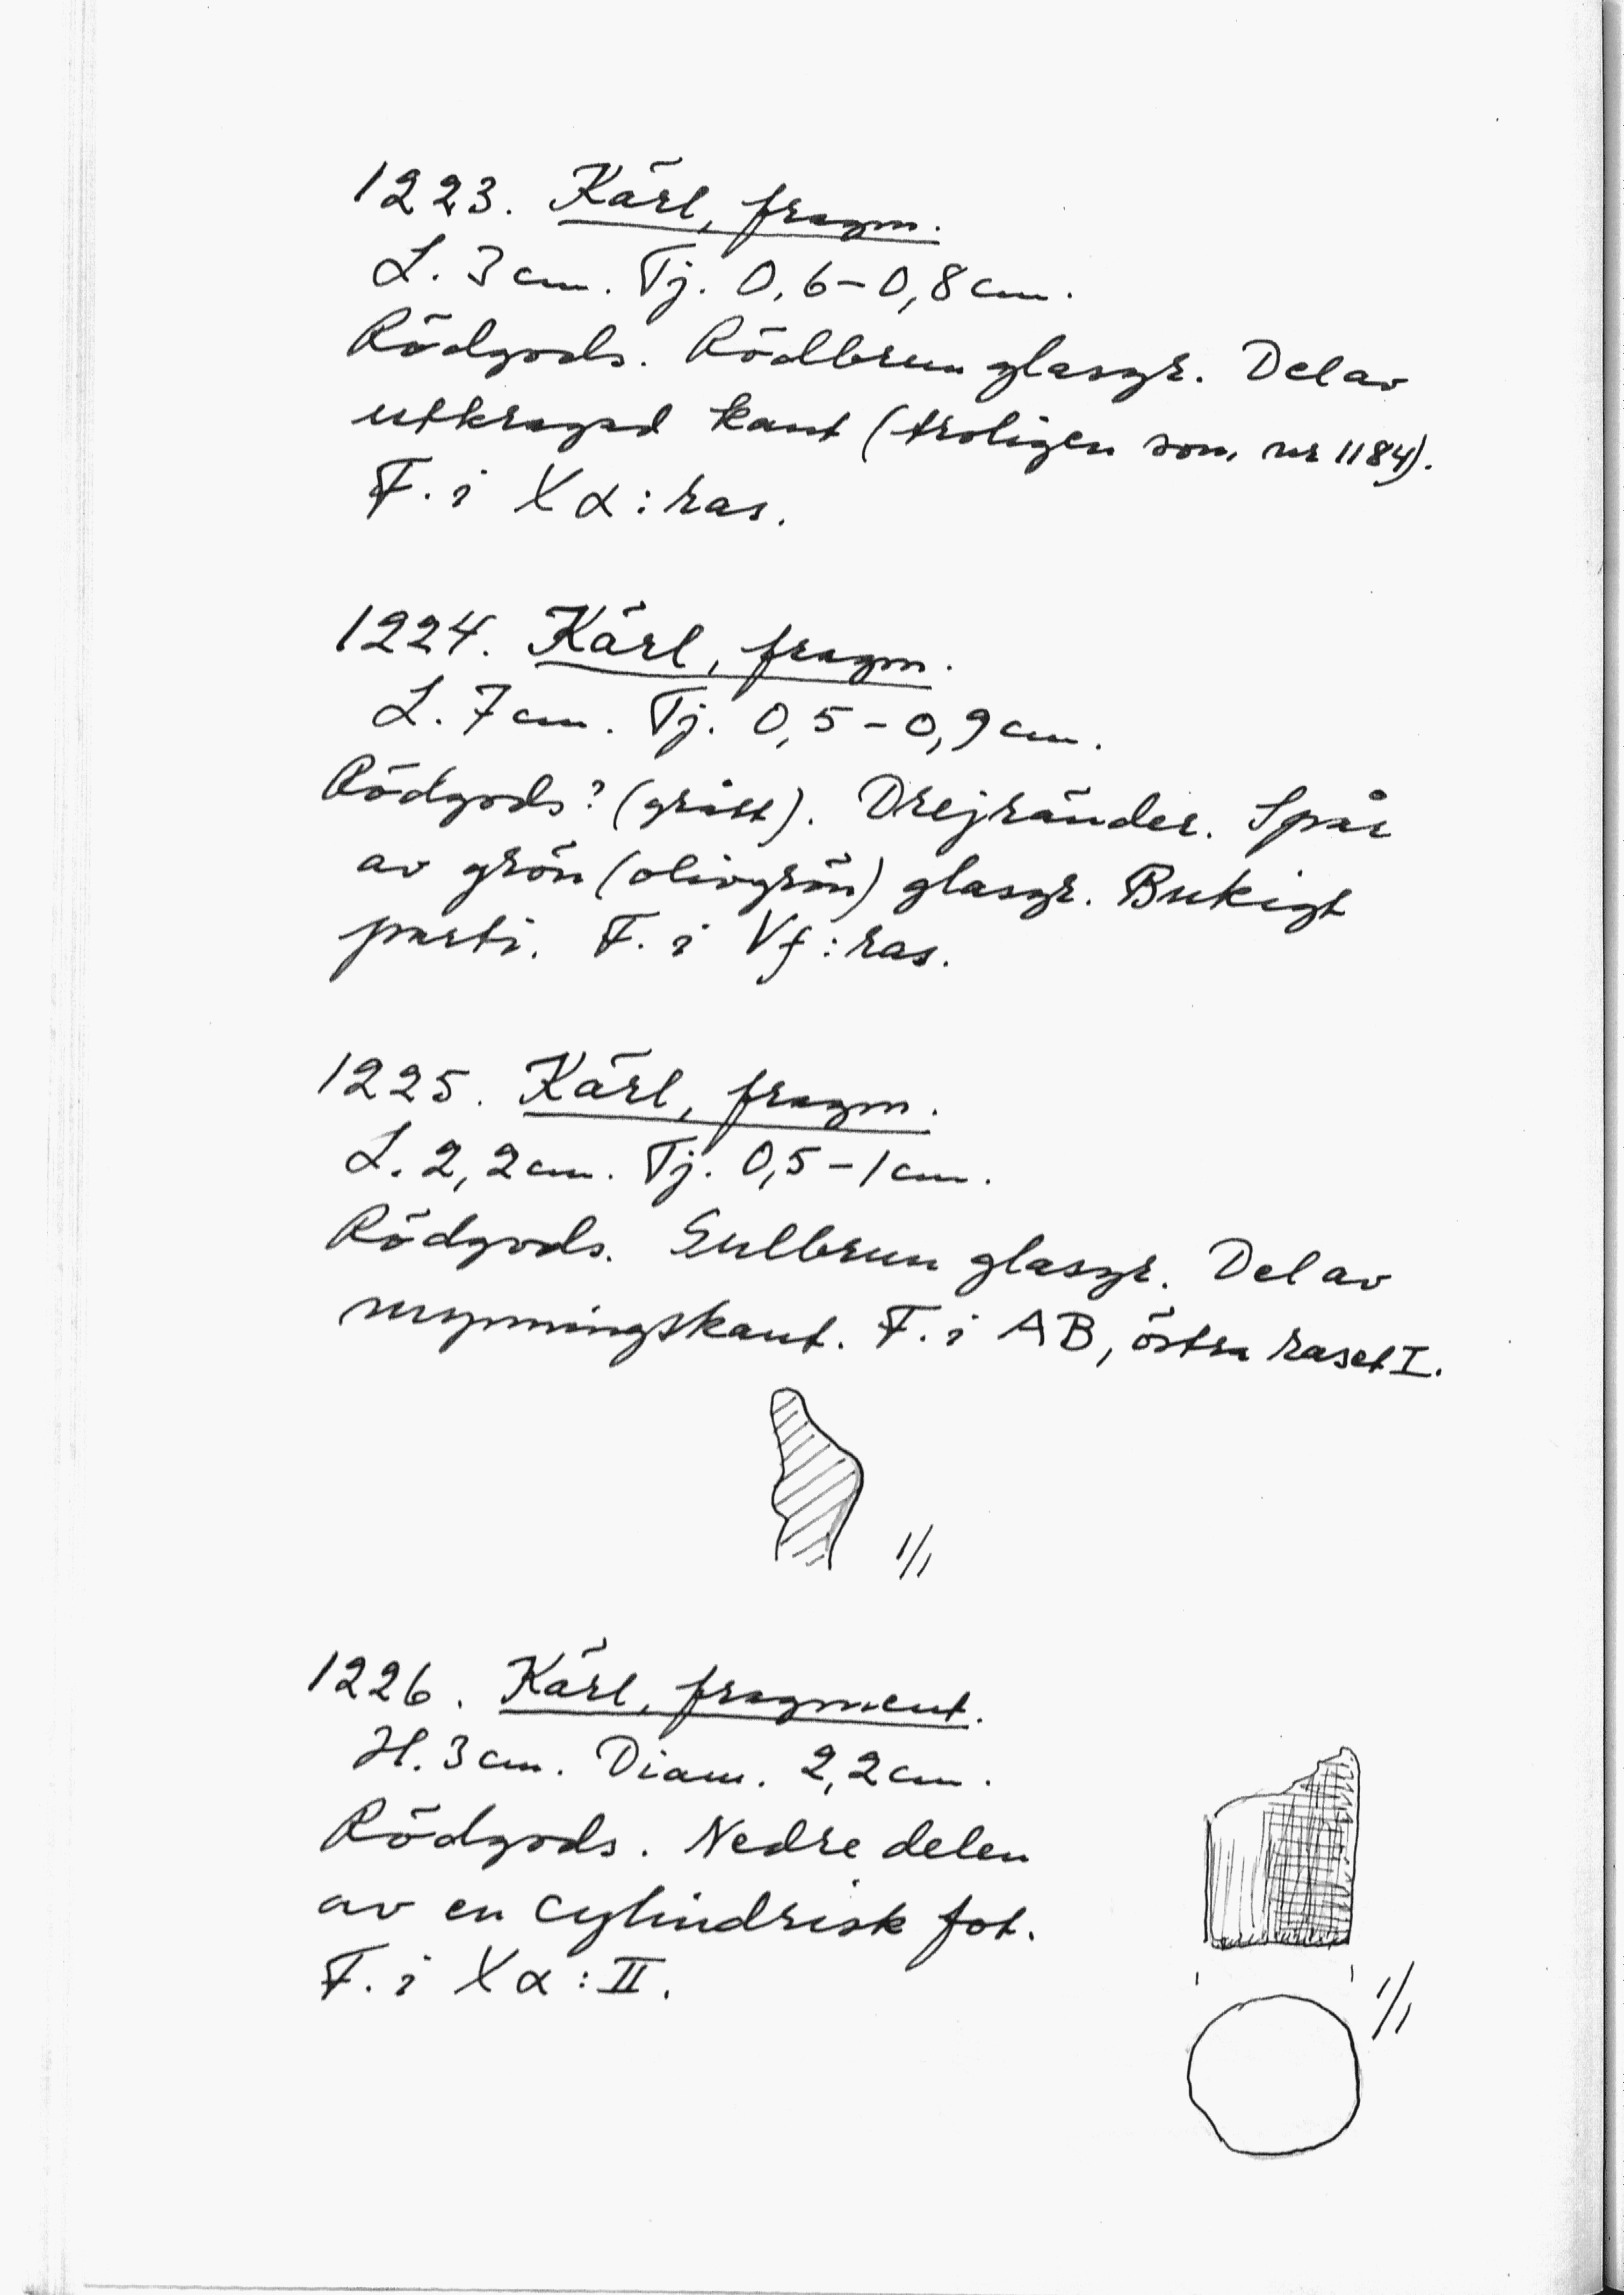 1223. Kärl, fragm.
L. 3 cm. Tj. 0,6–0,8 cm.
Rödgods. Rödbrun glasyr. Del av
utkragad kant (troligen som nr 1184).
F. i Xα: ras.
1224. Kärl, fragm.
L. 7 cm. Tj. 0,5–0,9 cm.
Rödgods? (grått). Drejränder. Spår
av grön (olivgrön) glasyr. Bukigt
parti. F. i Vf: ras.
1225. Kärl, fragm.
L. 2,2 cm. Tj. 0,5–1 cm.
Rödgods. Gulbrun glasyr. Del av
mynningskant. F. i AB, östra raset I.
1/1
1226. Kärl, fragment.
H. 3 cm. Diam. 2,2 cm.
Rödgods. Nedre delen
av en cylindrisk fot.
F. i Xα: II.
1/1